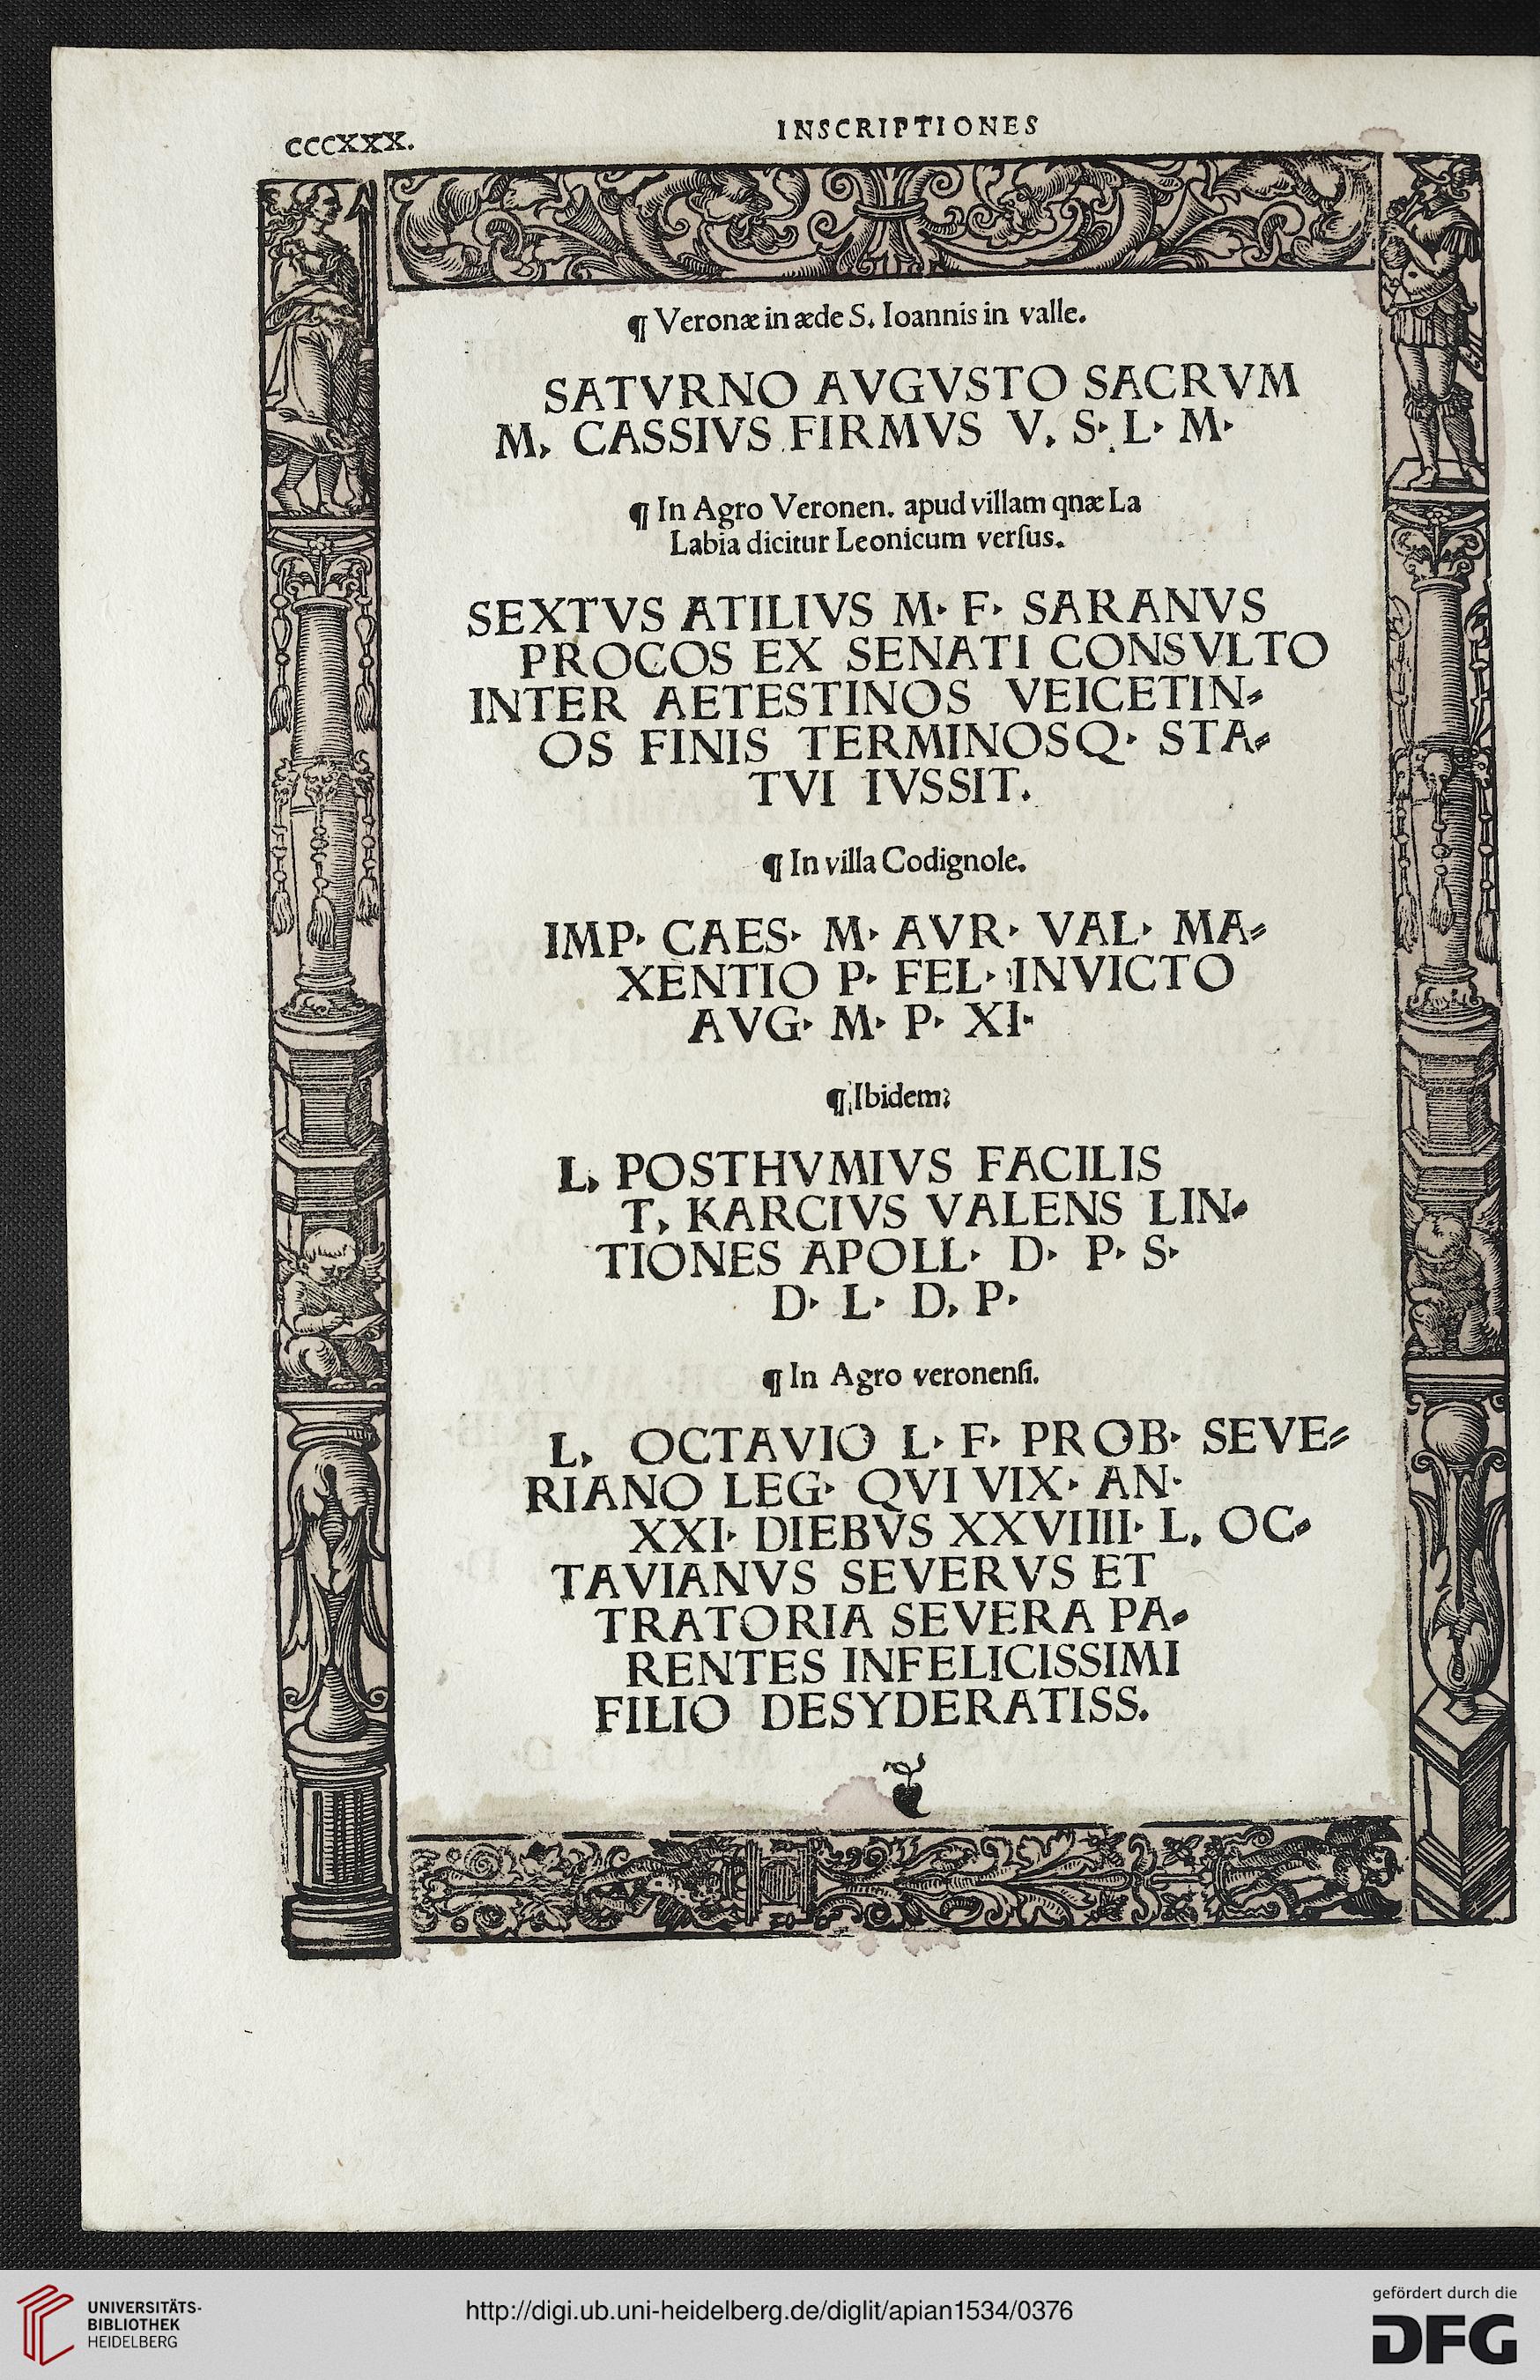 CCCXXX.
INSCRIPTIONES
¶ Veronæ in æde S. Ioannis in valle.
SATVRNO AVGVSTO SACRVM
M, CASSIVS FIRMVS V. S· L· M·
¶ In Agro Veronen. apud villam qnæ La
Labia dicitur Leonicum verſus.
SEXTVS ATILIVS M· F· SARANVS
PROCOS EX SENATI CONSVLTO
INTER AETESTINOS VEICETIN⸗
OS FINIS TERMINOSQ· STA⸗
TVI IVSSIT.
¶ In villa Codignole.
IMP· CAES· M· AVR· VAL· MA⸗
XENTIO P· FEL· INVICTO
AVG· M· P· XI·
¶ Ibidem:
L, POSTHVMIVS FACILIS
T, KARCIVS VALENS LIN⸗
TIONES APOLL· D· P· S·
D· L· D, P·
¶ In Agro veronenſi.
L, OCTAVIO L· F· PROB· SEVE⸗
RIANO LEG· QVI VIX· AN·
XXI· DIEBVS XXVIIII· L, OC⸗
TAVIANVS SEVERVS ET
TRATORIA SEVERA PA⸗
RENTES INFELICISSIMI
FILIO DESYDERATISS.
UNIVERSITÄTS-
BIBLIOTHEK
HEIDELBERG
http://digi.ub.uni-heidelberg.de/diglit/apian1534/0376
gefördert durch die
DFG